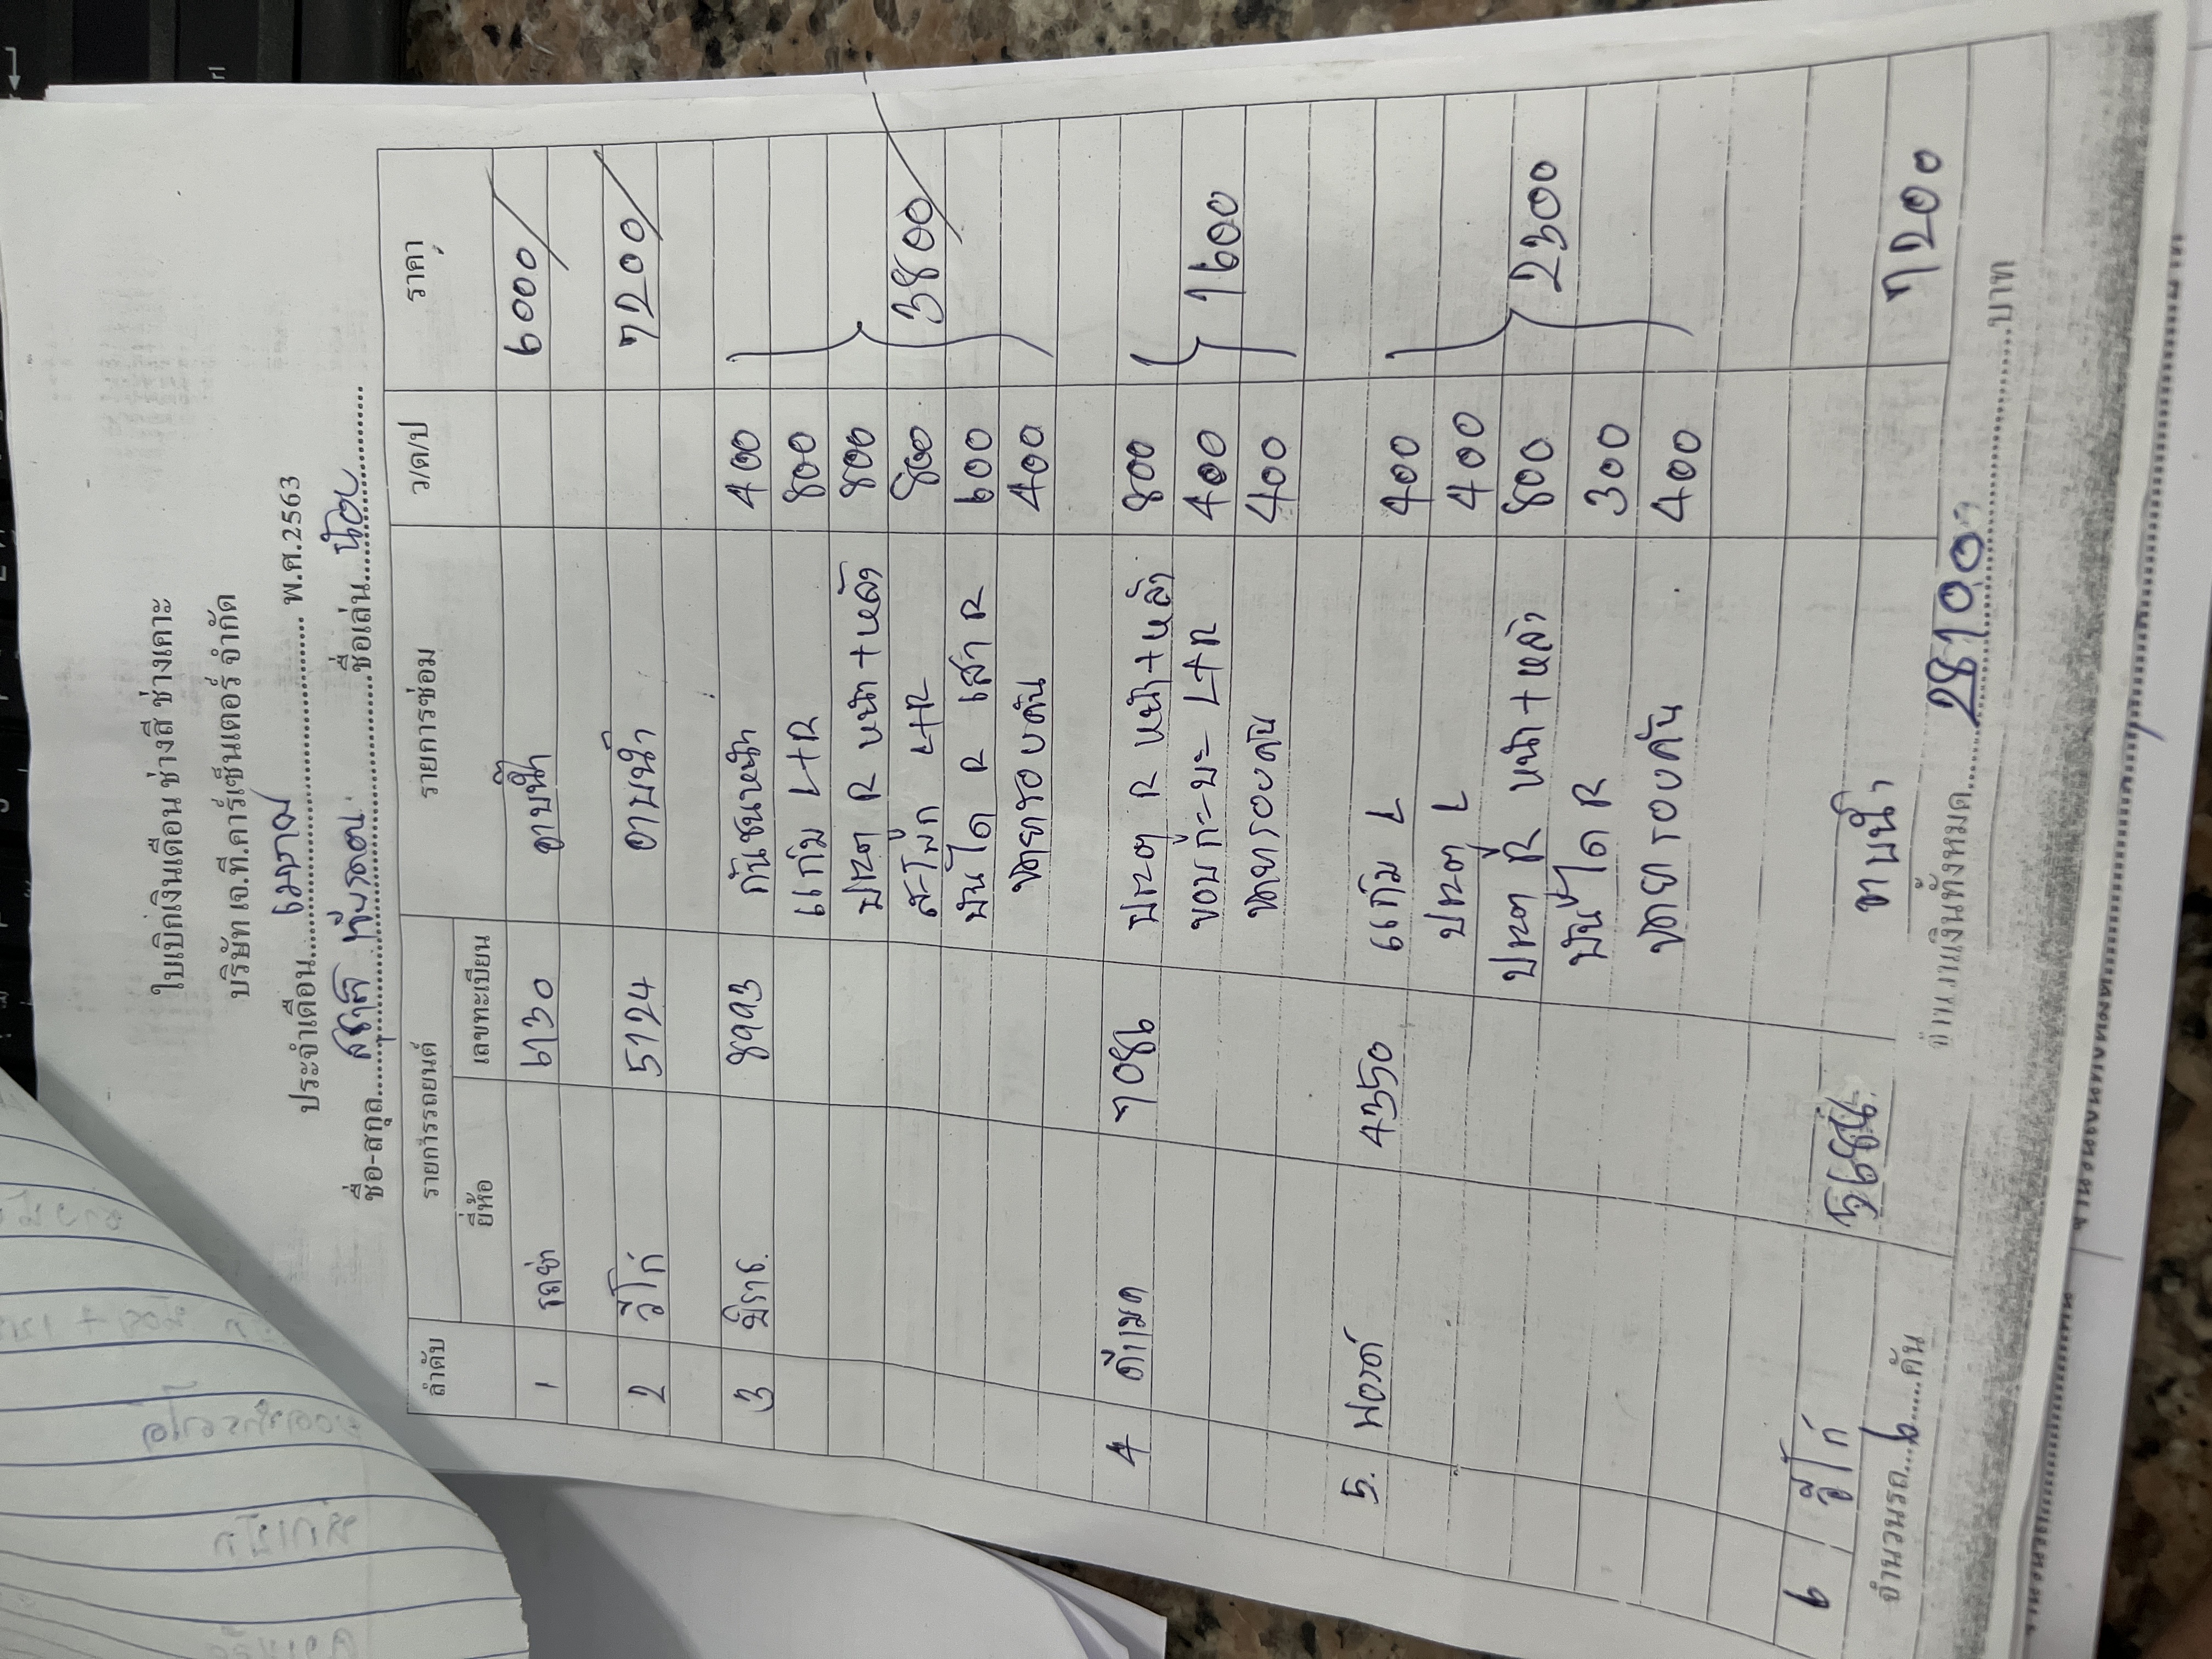 ใบเบิกเงินเดือน ช่างสี ช่างเคาะ
บริษัท เจ.ที.คาร์เซ็นเตอร์ จำกัด
ประจำเดือน....เมษายน.... พ.ศ.2563
ชื่อ-สกุล.... ....ชื่อเล่น....น้อย....
ลำดับ รายการรถยนต์ รายการซ่อม ว/ด/ป ราคา
ยี่ห้อ เลขทะเบียน
1 6130 อาบน้ำ 6000/
2 วีโก้ 5124 อาบน้ำ 7200/
3 มิราจ 8993 กันชนหน้า 400
แก้ม L+R 800
ประตู R หน้า+หลัง 800
สะโพก L+R 800 3800/
บันได R เสา R 600
รอบคัน 400
4 ดีแมค 7086 ประตู R หน้า+หลัง 800
ขอบกะบะ L+R 400 1600
รอบคัน 400
5. ฟอร์ด 4350 แก้ม L 400
ประตู L 400
ประตู R หน้า+หลัง 800 2300
บันได R 300
รอบคัน 400
6 วีโก้ อาบน้ำ 7200
จำนวนรถ....6....คัน จำนวนเงินทั้งหมด....28100....บาท